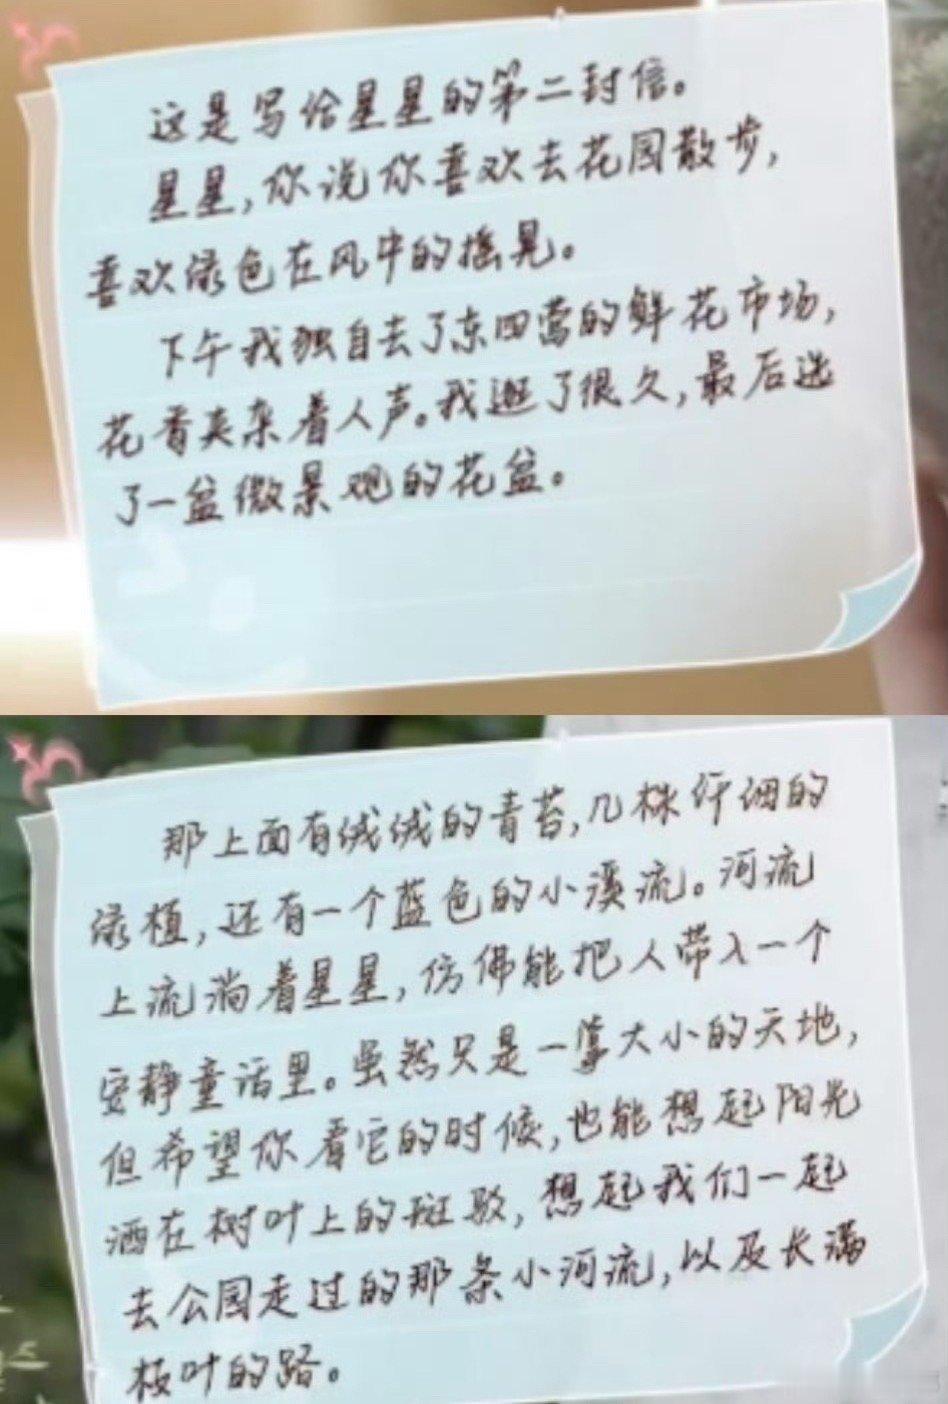 这是写给星星的第二封信。
星星,你说你喜欢去花园散步,
喜欢绿色在风中的摇晃。
下午我独自去了东四营的鲜花市场,
花香夹杂着人声。我逛了很久,最后选
了一盆微景观的花盆。
那上面有绒绒的青苔,几株纤细的
绿植,还有一个蓝色的小溪流。河流
上流淌着星星,仿佛能把人带入一个
安静童话里。虽然只是一掌大小的天地,
但希望你看它的时候,也能想起阳光
洒在树叶上的斑驳,想起我们一起
去公园走过的那条小河流,以及长满
枝叶的路。